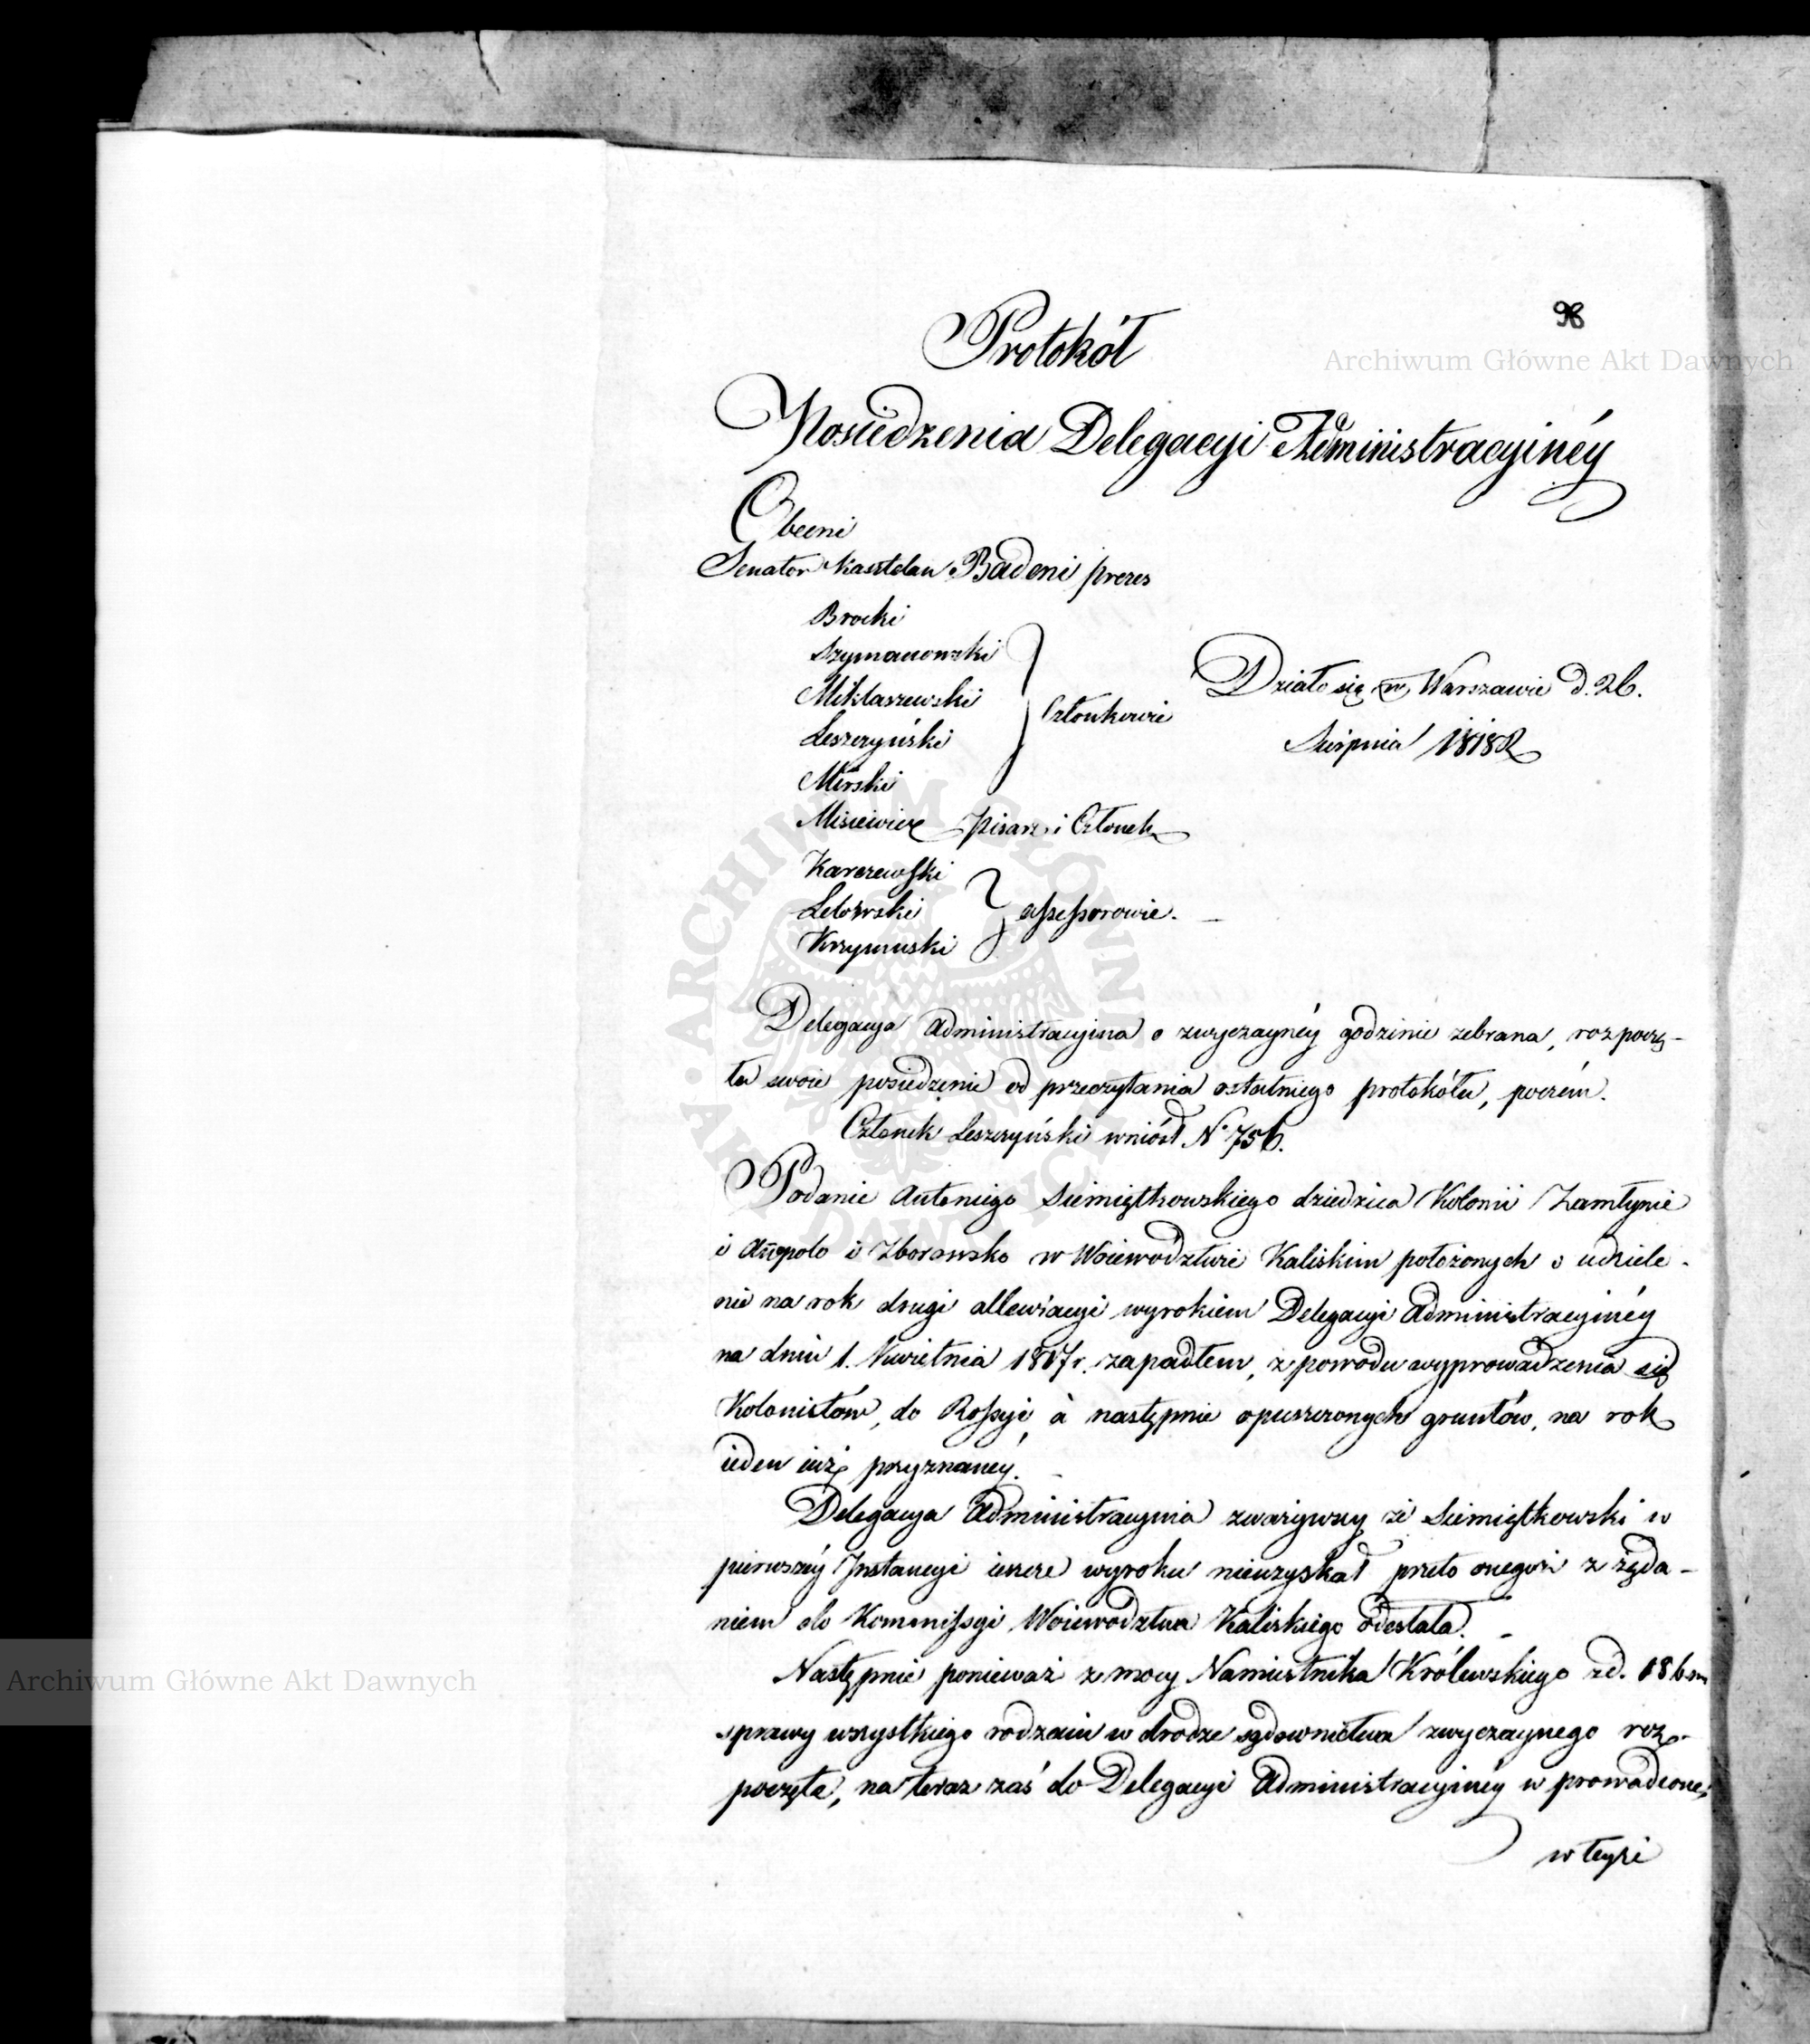 98
Protokół
Posiedzenia Delegacyi Administracyinéy
Obecni
Senator Kasztelan Badeni prezes
Brocki
Szymanowski
Miklaszewski
Leszczyński
Członkowie
Działo się w Warszawie d. 26.
Sierpnia 1818 R
Mirski
Misiewicz Pisarz i Członek
Karczewski
Krzymuski
assessorowie.
Delegacya Administracyina o zwyczaynéy godzinie zebrana, rozpoczę-
ła swoie posiedzenie od przeczytania ostatniego protokółu, poczém.
Członek Leszczyński wniósł N° 756.
Podanie Antoniego Siemiątkowskiego dziedzica Kolonii Zamłynie
i Annopolo i Zborowsko w Woiewodztwie Kaliskim położonych o udziele-
nie na rok drugi allewiacyi wyrokiem Delegacyi Administracyinéy
na dniu 1. Kwietnia 1817 r. zapadłem, z powodu wyprowadzenia się
Kolonistów, do Rossyi, à następnie opuszczonych gruntów, na rok
ieden iuż przyznanéy.
Delegacya Administracyina zważywszy że Siemiątkowski w
pierwszéy Instancyi ieszcze wyroku nieuzyskał przeto onegoż z żąda-
niem do Kommissyi Woiewodztwa Kaliskiego odesłała.
Następnie ponieważ z mocy Namiestnika Królewskiego z d.
sprawy wszystkiego rodzaiu w drodze sądownictwa zwyczaynego roz-
poczęte, na teraz zaś do Delegacyi Administracyinéy wprowadzone,
w teyże
Archiwum Główne Akt Dawnych
Archiwum Główne Akt Dawnych
ARCHIWUM GŁÓWNE AKT DAWNYCH